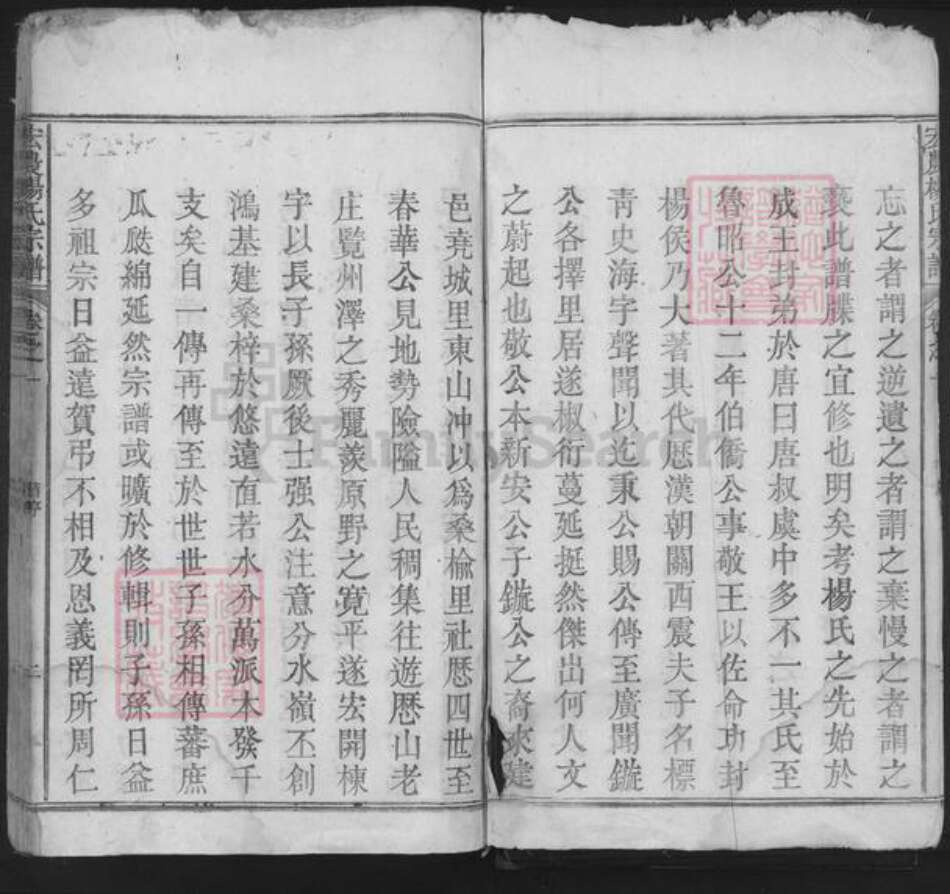 忘之者謂之逆遺之者謂之棄慢之者謂之
褻此譜牒之宜修也明矣考楊氏之先始於
成王封弟於唐曰唐叔虞中多不一其氏至
魯昭公十二年伯僑公事敬王以佐命功封
楊侯乃大著其代歷漢朝關西震夫子名標
青史海宇聲聞以迄秉公賜公傳至廣聞鏇
公各擇里居遂椒衍蔓延挺然傑出何人文
之蔚起也敬公本新安公子鏇公之裔來建
邑堯城里東山冲以爲桑榆里社歷四世至
春華公見地勢險隘人民稠集往遊歷山老
庄覽州澤之秀麗羨原野之寬平遂宏開棟
宇以長子孫厥後士强公注意分水嶺丕創
鴻基建桑梓於悠遠直若水分萬派木發千
支矣自一傳再傳至於世世子孫相傳蕃庶
瓜瓞綿延然宗譜或曠於修輯則子孫日益
多祖宗日益遠賀弔不相及恩義罔所周仁
宏農楊氏宗譜
卷之一
二
FamilySearch